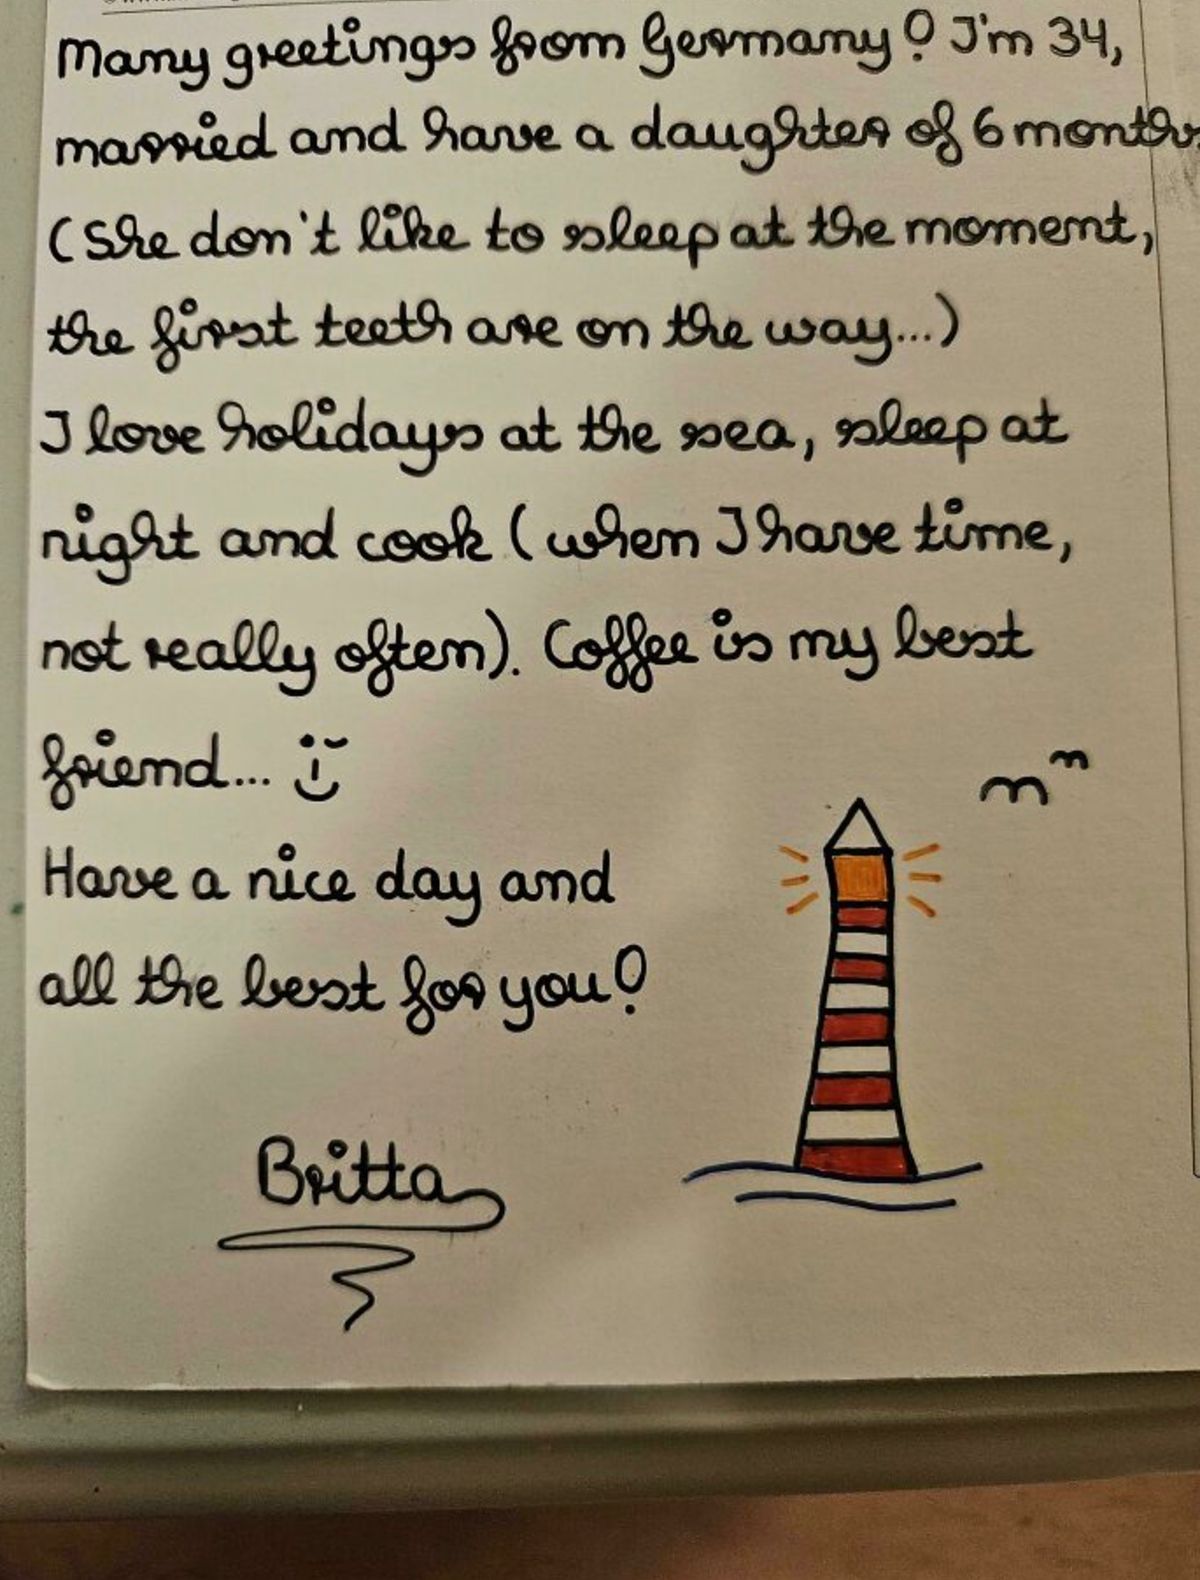 Many greetings from Germany! I'm 34,
married and have a daughter of 6 months
(She don't like to sleep at the moment,
the first teeth are on the way...)
I love holidays at the sea, sleep at
night and cook (when I have time,
not really often). Coffee is my best
friend...
Have a nice day and
all the best for you!
Britta